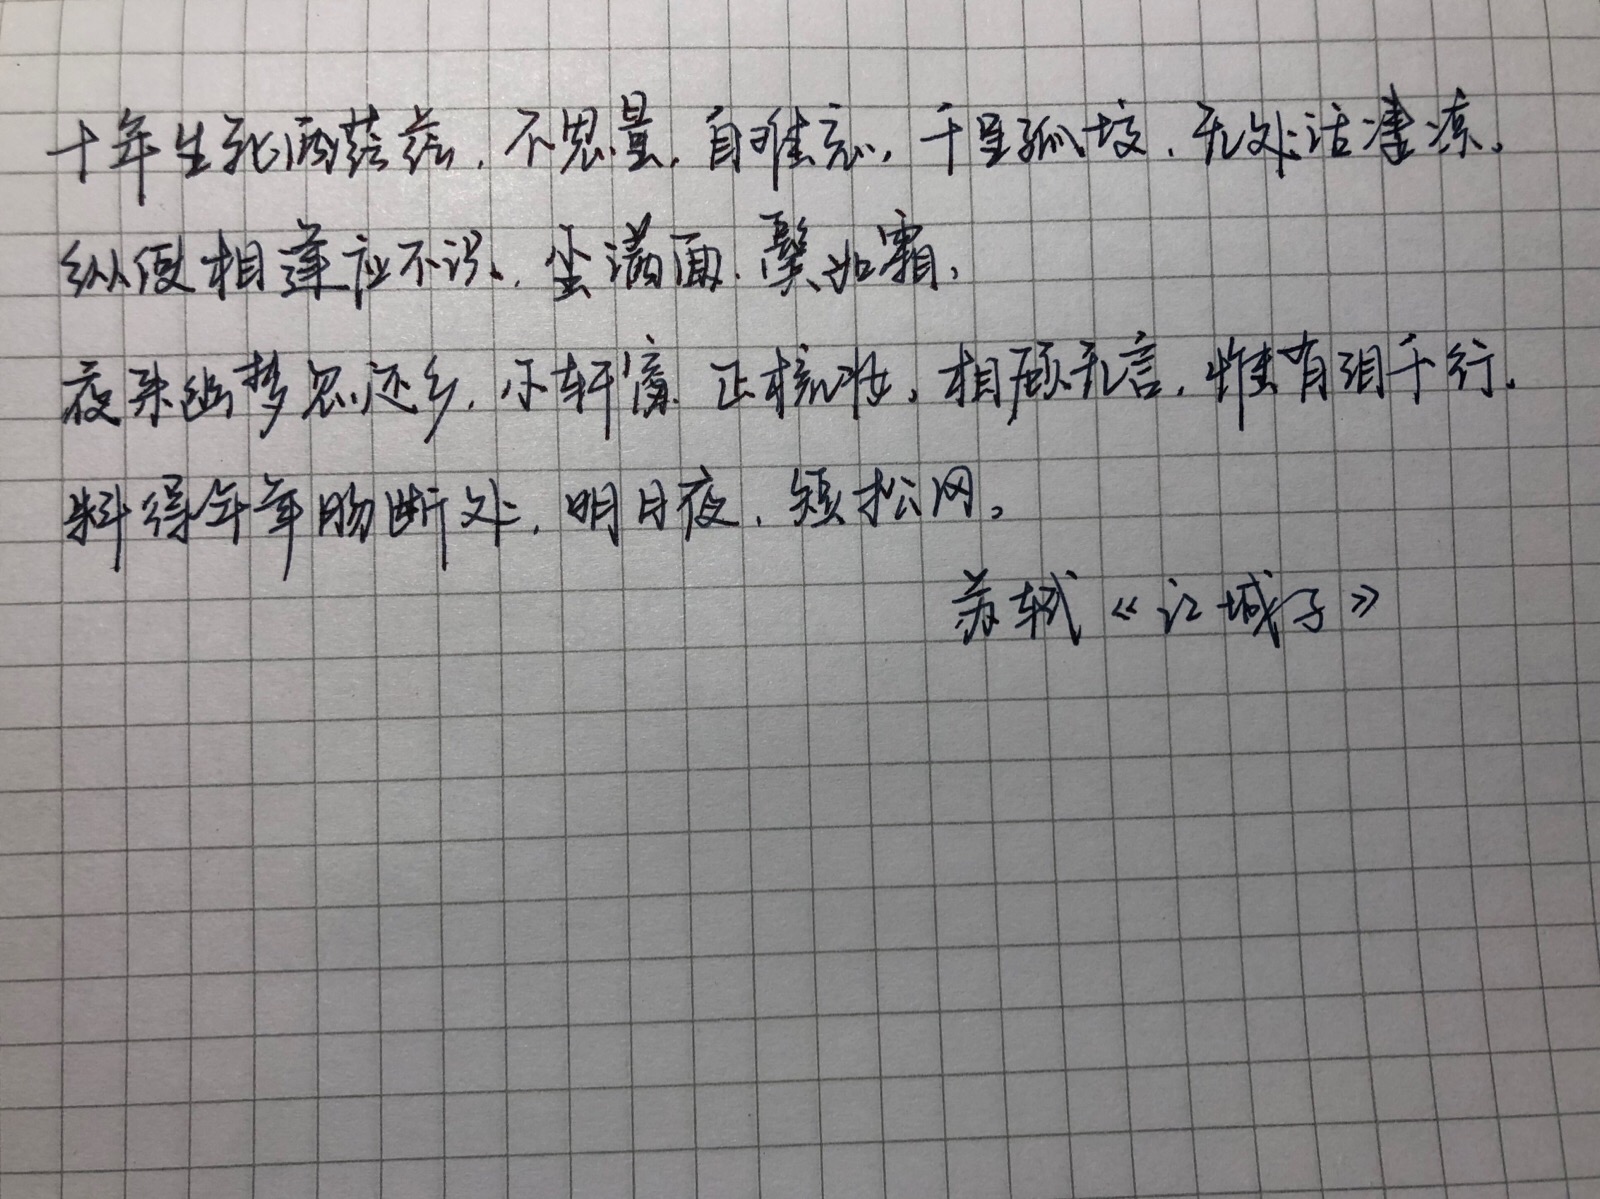 十年生死两茫茫，不思量，自难忘，千里孤坟，无处话凄凉。
纵使相逢应不识，尘满面，鬓如霜，
夜来幽梦忽还乡，小轩窗，正梳妆，相顾无言，惟有泪千行。
料得年年肠断处，明月夜，短松冈。
苏轼《江城子》